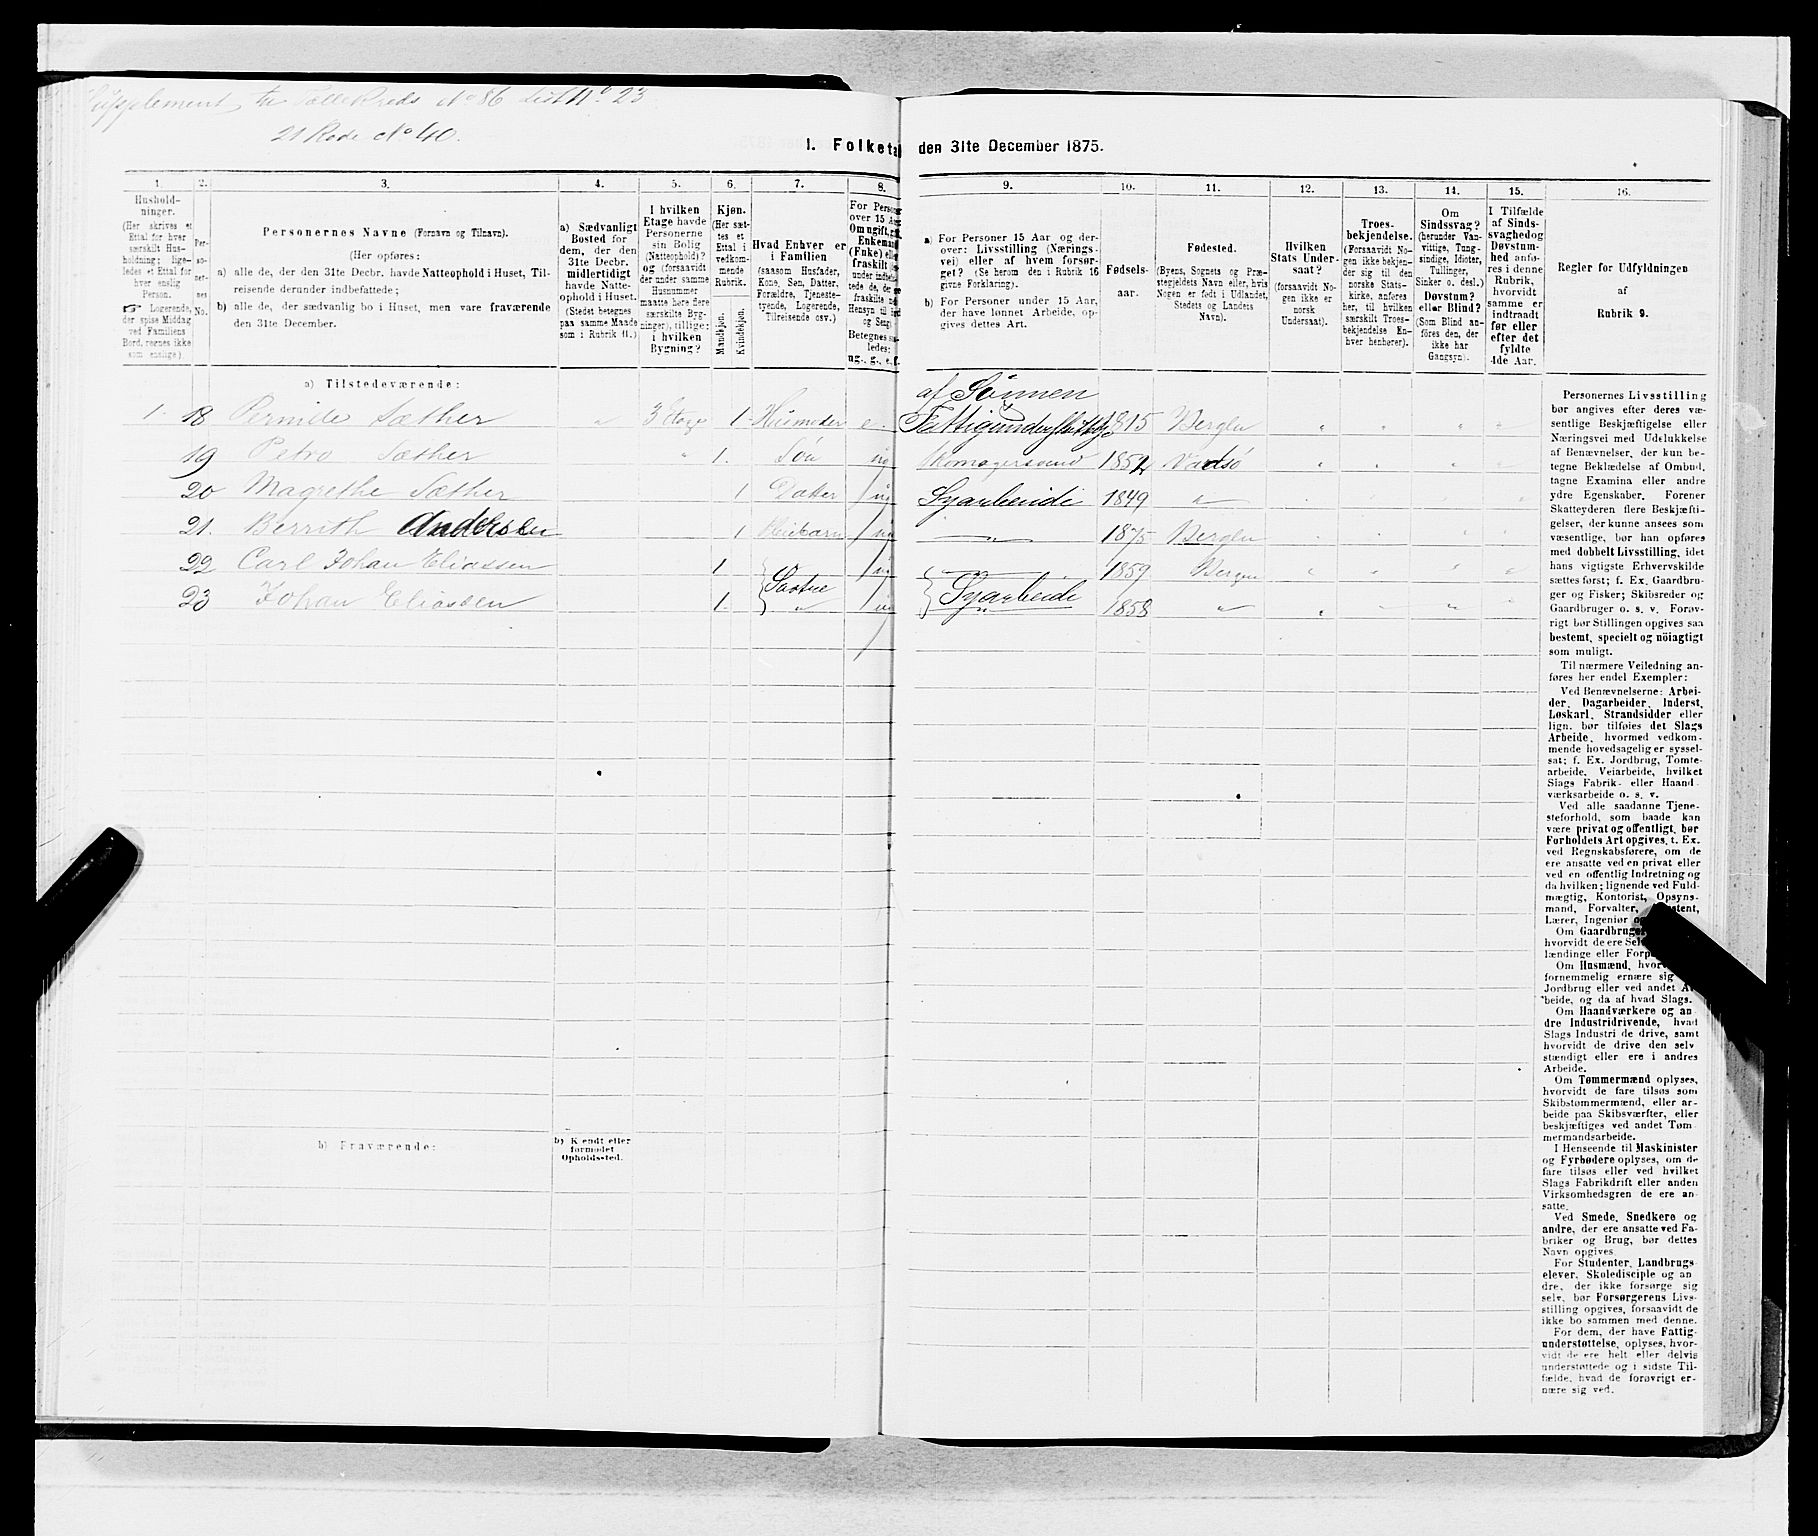 Supplement til Tællekreds No 86 List No. 23
21 Rode No 40.
1. Folketal den 31te December 1875.
1. 2. 3. 4. 5. 6. 7. 8. 9. 10. 11. 12. 13. 14. 15. 16.
Hushold-
ninger.
(Her skrives et
Ettal for hver
særskilt Hus-
holdning; lige-
ledes et Ettal for
hver enslig
Person.
☞ Logerende,
der spise Middag
ved Familiens
Bord, regnes ikke
som enslige.)
Per-
so-
ner-
nes
No.
Personernes Navne (Fornavn og Tilnavn).
(Her opføres:
a) alle de, der den 31te Decbr. havde Natteophold i Huset, Til-
reisende derunder indbefattede;
b) alle de, der sædvanlig bo i Huset, men vare fraværende
den 31te December.
a) Sædvanligt
Bosted for
dem, der den
31te Decbr.
midlertidigt
havde Natte-
ophold i Huset.
(Stedet betegnes
paa samme Maade
som i Rubrik 11.)
I hvilken
Etage havde
Personerne
sin Bolig
(Natteophold)?
og (forsaavidt
der under samme
Husnummer
maatte høre flere
særskilte Byg-
ninger), tillige:
i hvilken
Bygning?
Kjøn.
(Her sæt-
tes et
Ettal i
vedkom-
mende
Rubrik.
Mandkjøn.
Kvindekjøn.
Hvad Enhver er
i Familien
(saasom Husfader,
Kone, Søn, Datter,
Forældre, Tjeneste-
tyende, Logerende,
Tilreisende osv.)
For Person
over 15 Aar
Om ugift, gift
Enkemand
(Enke) eller
fraskilt
under indbefat-
tede de, der ere
fraskilte
Hensyn til Bord
og Seng).
Betegnes saa-
ledes:
ug., g., e., f.
a) For Personer 15 Aar og der-
over: Livsstilling (Nærings-
vei) eller af hvem forsør-
get? (Se herom den i Rubrik 16
givne Forklaring).
b) For Personer under 15 Aar,
der have lønnet Arbeide, op-
gives dettes Art.
Fødsels-
aar.
Fødested.
(Byens, Sognets og Præ-
stegjeldets Navn eller, hvis
Nogen er født i Udlandet,
Stedets og Landets
Navn).
Hvilken
Stats Under-
saat?
(forsaavidt No-
gen ikke er
norsk
Undersaat).
Troes-
bekjendelse.
(Forsaavidt No-
gen ikke bekjen-
der sig til den
norske Stats-
kirke, anføres
her, til hvilken
særskilt Troes-
bekjendelse En-
hver henhører).
Om
Sindssvag?
(herunder Van-
vittige, Tung-
sindige, Idioter,
Tullinger,
Sinker o. desl.)
Døvstum?
eller Blind?
(Som Blind an-
føres den, der
ikke har
Gangsyn).
I Tilfælde
af Sinds-
svaghed og
Døvstum-
hed anfø-
res i denne
Rubrik,
hvorvidt
samme er
indtraadt
før eller
efter det
fyldte
4de Aar.
Regler for Udfyldningen
af
Rubrik 9.
a) Tilstedeværende:
af Sønnen
1. 18 Pernille Sæther " 3 Etage 1 Husmoder e. Fattigunderstøttelse 1815 Bergen " " " "
19 Petro Sæther " 1. Søn ug Komagersvend 1852 Vadsø " " " "
20 Magrethe Sæther 1 Datter ug Syarbeide 1849 "
21. Berrith Andersen 1 Pleiebarn ug " 1875 Bergen
22 Carl Johan Eliassen 1 ug " 1859 Bergen " " " "
23 Johan Eliassen 1. " ug Syarbeide 1858 " " " " "
b) Fraværende:
b) Kjendt eller
formodet
Opholdssted.
Personernes Livsstilling
bør angives efter deres væ-
sentlige Beskjæftigelse eller
Næringsvei med Udelukkelse
af Benævnelser, der kun be-
tegne Beklædelse af Ombud,
tagne Examina eller andre
ydre Egenskaber. Forener
Skatteyderen flere Beskjæfti-
gelser, der kunne ansees som
væsentlige, bør han opføres
med dobbelt Livsstilling, idet
hans vigtigste Erhvervskilde
sættes først; f. Ex. Gaardbru-
ger og Fisker; Skibsreder og
Gaardbruger o. s. v. Forøv-
rigt bør Stillingen opgives saa
bestemt, specielt og nöiagtigt
som muligt.
Til nærmere Veiledning an-
føres her endel Exempler:
Ved Benævnelserne: Arbei-
der, Dagarbeider, Inderst,
Løskarl, Strandsidder eller
lign. bør tilføies det Slags
Arbeide, hvormed vedkom-
mende hovedsagelig er syssel-
sat; f. Ex. Jordbrug, Tomte-
arbeide, Veiarbeide, hvilket
Slags Fabrik- eller Haand-
værksarbeide o. s. v.
Ved alle saadanne Tjene-
steforhold, som baade kan
være privat og offentligt, bør
Forholdets Art opgives, t. Ex.
ved Regnskabsførere, om de
ere ansatte ved en privat eller
ved en offentlig Indretning og
da hvilken; lignende ved Fuld-
mægtig, Kontorist, Opsyns-
mand, Forvalter,
Lærer, Ingeniør
Om Gaardbruger
hvorvidt de ere
lændinge eller
Om Husmænd,
fornemmelig ernære sig
Jordbrug eller ved andet Ar-
beide, og da af hvad Slags.
Om Haandværkere og an-
dre Industridrivende, hvad
Slags Industri de drive, samt
hvorvidt de drive den selv-
stændigt eller ere i andres
Arbeide.
Om Tømmermænd oplyses,
hvorvidt de fare tilsøs som
Skibstømmermænd, eller ar-
beide paa Skibsværfter, eller
beskjæftiges ved andet Tøm-
mermandsarbeide.
I Henseende til Maskinister
og Fyrbødere oplyses, om de
fare tilsøs eller ved hvilket
Slags Fabrikdrift eller anden
Virksomhedsgren de ere an-
satte.
Ved Smede, Snedkere og
andre, der ere ansatte ved Fa-
briker og Brug, bør dettes
Navn opgives.
For Studenter, Landbrugs-
elever, Skoledisciple og an-
dre, der ikke forsørge sig
selv, bør Forsørgerens Livs-
stilling opgives, forsaavidt de
ikke bo sammen med denne.
For dem, der have Fattig-
understøttelse, oplyses, hvor-
vidt de ere helt eller delvis
understøttede og i sidste Til-
fælde, hvad de forøvrigt er-
nære sig ved.